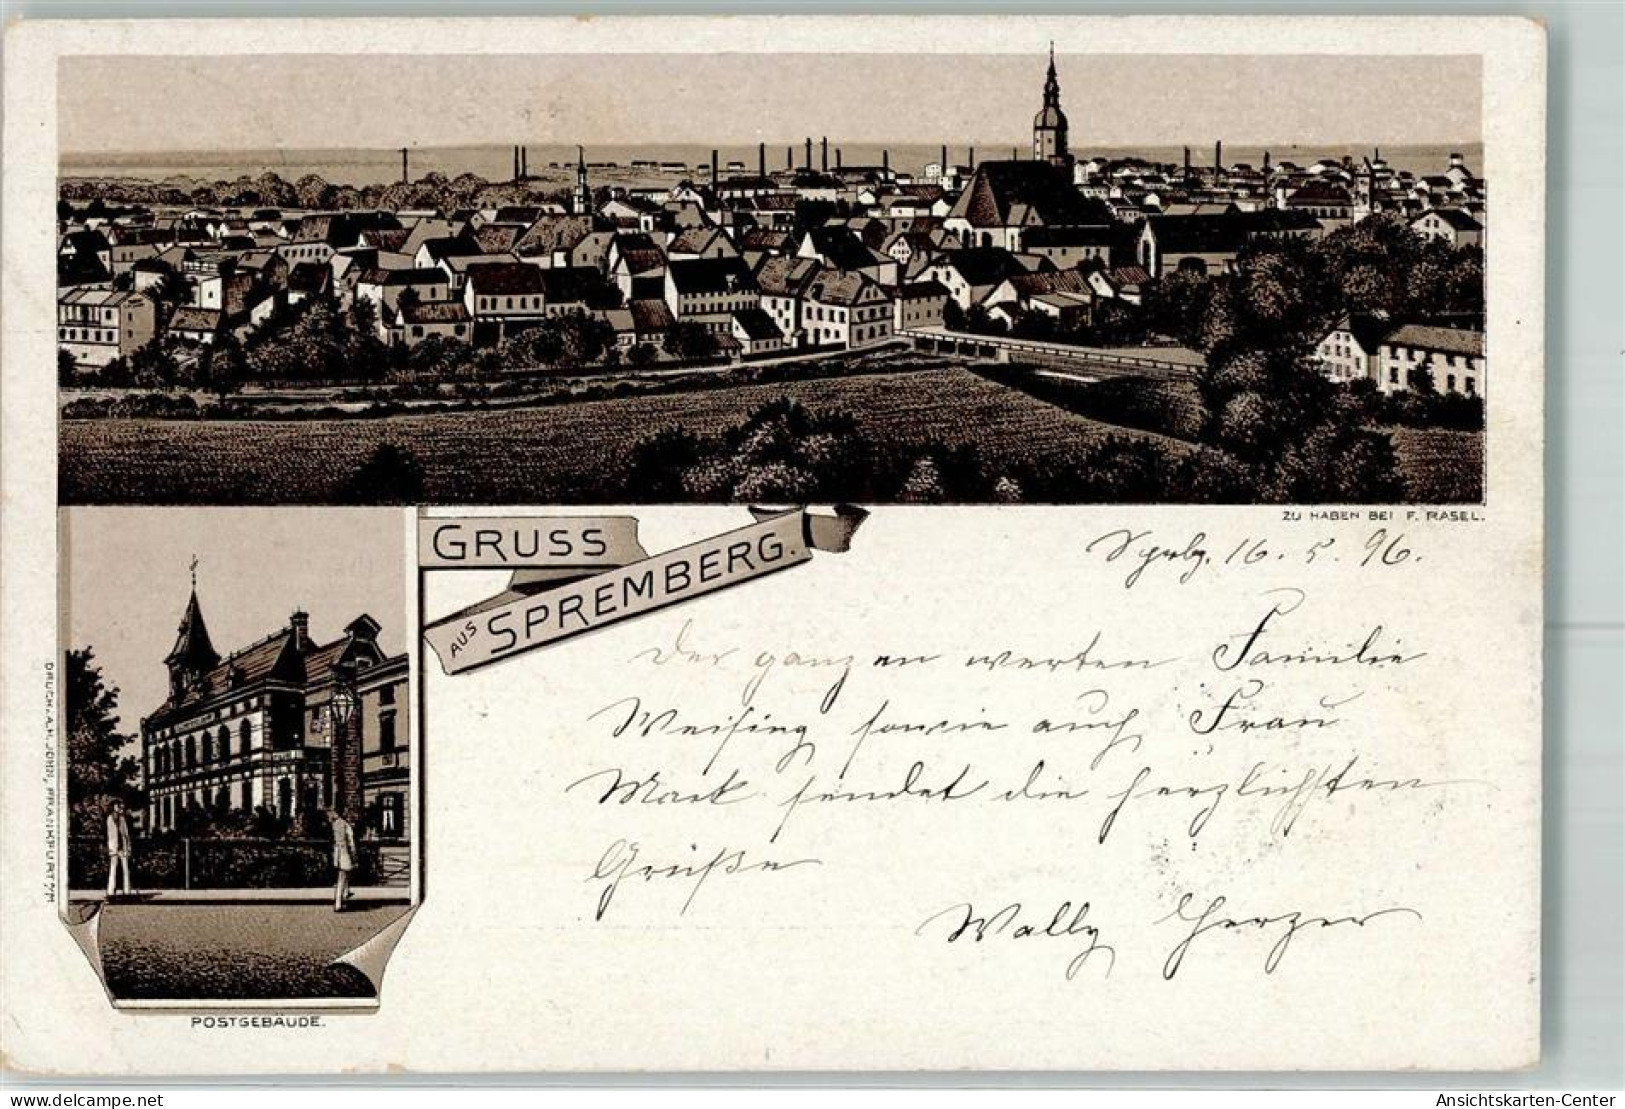 ZU HABEN BEI F. RASEL.
GRUSS
AUS SPREMBERG.
Sprbg. 16. 5. 96.
Der ganzen werten Familie
Weising sowie auch Frau
Mark sendet die herzlichsten
Grüße
Wally Herzer
DRUCK. A. H. JOHN, FRANKFURT a/M
POSTGEBÄUDE.
www.delcampe.net
betohe
Ansichtskarten-Center